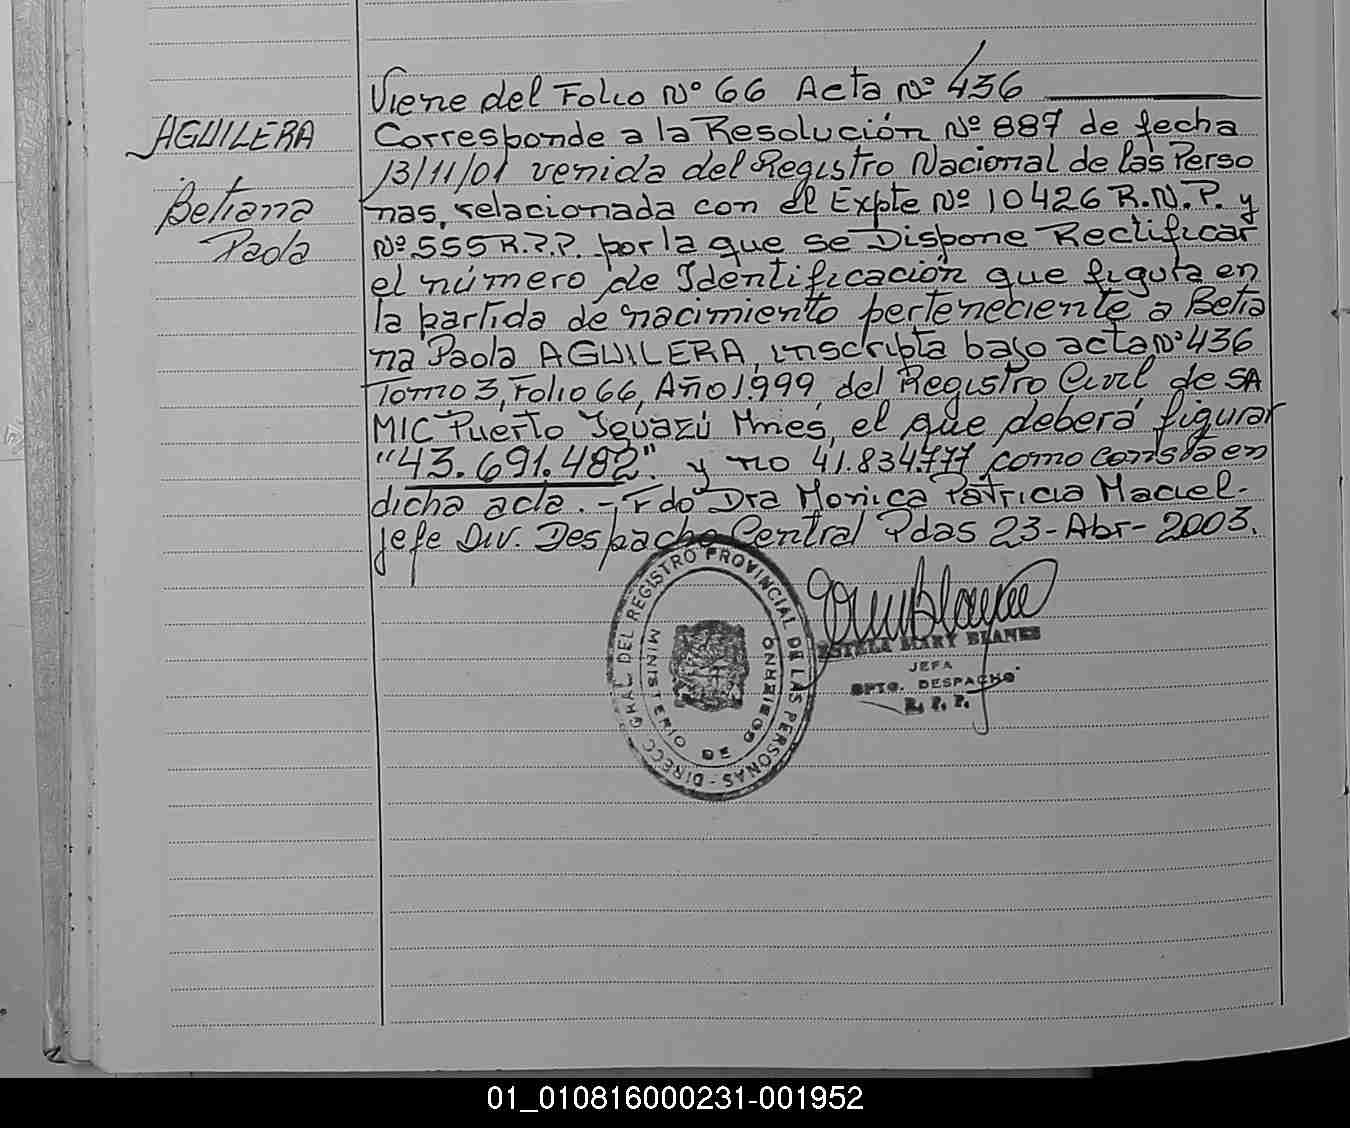 Viene del Folio Nº 66 Acta Nº 436
AGUILERA
Betiana
Paola
Corresponde a la Resolución Nº 887 de fecha
13/11/01 venida del Registro Nacional de las Perso
nas, relacionada con el Expte Nº 10426 R.N.P. y
Nº 555 R.P.P. por la que se Dispone Rectificar
el número de Identificación que figura en
la partida de nacimiento perteneciente a Betia
na Paola AGUILERA, inscripta bajo acta Nº 436
Tomo 3, Folio 66, Año 1.999, del Registro Civil de SA
MIC Puerto Iguazú Mnes, el que deberá figurar
"43.691.482" y no 41.834.777 como consta en
dicha acta. - Fdo Dra Monica Patricia Maciel-
Jefe Div. Despacho Central Pdas 23-Abr-2003.
DIRECC. GRAL. DEL REGISTRO PROVINCIAL DE LAS PERSONAS -
MINISTERIO DE GOBIERNO
ESTELA MARY BLANES
JEFA
DPTO. DESPACHO
R. P. P.
01_010816000231-001952